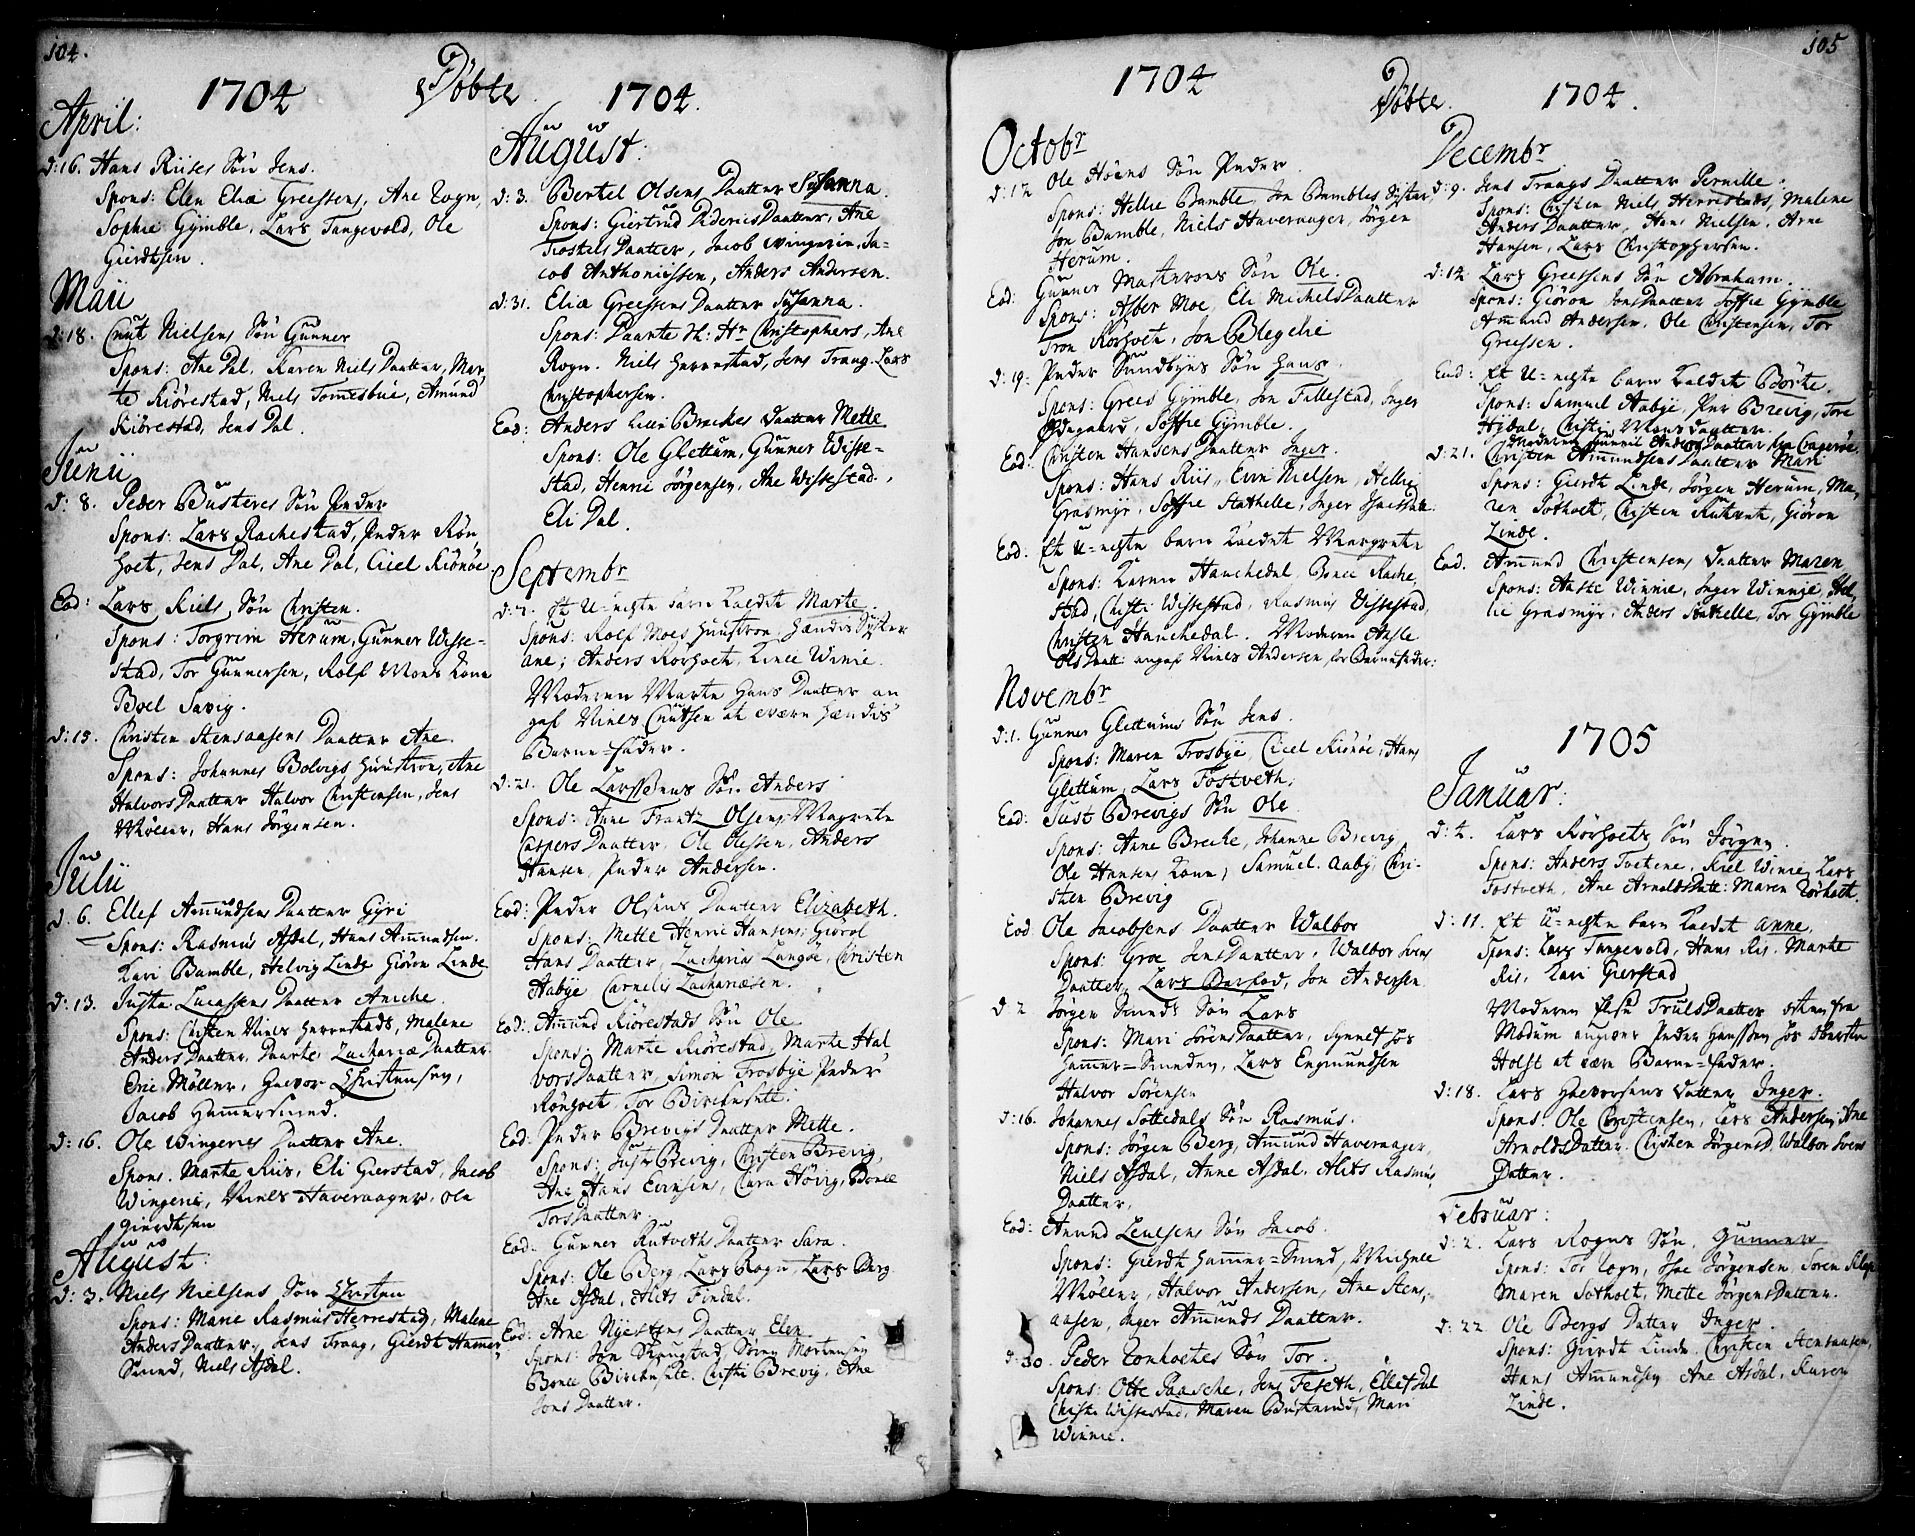 104.
Döbte
1704
April:
d: 16. Hans Riises Sön Jens.
Spons: Elen Eliæ Greessens, Ane Rogn,
Sophie Gÿmble, Lars Tangevold, Ole
Gierdtsen.
Maii
d: 18. Cnut Nielsens Sön Gunner
Spons: Ane Dal, Karen NielsDaatter, Mar-
te Kiörestad, Niels Tomesbuie, Amund
Kiörestad, Jens Dal.
Junii
d: 8. Peder Busteres Sön Peder
Spons: Lars Rachestad, Peder Rön
hoet, Jens Dal, Ane Dal, Cicel Kiönöe
Eod: Lars Kiels Sön Christen.
Spons: Torgrim Herum, Gunner Wisse-
stad, Tor Gunnersen, Rolf Moes Kone
Boel Savig.
d: 15. Christen Stensaasens Daatter Ane.
Spons: Johannes Bolvigs Huustroe, Ane
HalvorsDaatter Halvor Christensen, Jens
Möller, Hans Jörgensen.
Julii
d: 6. Ellef Amundsens Daatter Gÿri
Spons: Rasmus Asdal, Hans Amundsen.
Kari Bamble, Helvig Linde Giören Linde
d: 13. Juste Lucassens Daatter Aniche.
Spons: Christen Niels Herrestads, Malene
AndersDaatter, Daarte ZachariæDaatter
Eric Möller, Halvor Christensen,
Jacob Hamersmed.
d: 16. Ole Wingeries Daatter Ane.
Spons. Marte Riis, Eli Gierstad, Jacob
Wingerie, Niels Haveraager, Ole
Gierdtsen
August:
d: 3. Niels Nielsens Sön Christen
Spons: Marie Rasmus Herrestad, Malene
AndersDaatter, Jens Traag, Gierdt Hamer
Smed, Niels Asdal.
1704.
August:
d: 3. Bertel Olsens Daatter Susanna.
Spons: Giertrud DidericsDaatter, Ane
TroskelsDaatter, Jacob Wingerie, Ja-
cob Anthoniissen, Anders Andersen.
d: 31. Eliæ Greessens Daatter Susanna.
Spons: Daarte H: Hr Christophers, Ane
Rogn. Niels Herrestad, Jens Traag. Lars
Christophersen.
Eod: Anders Lille Breckes Daatter Mette
Spons: Ole Glettum, Gunner Wisse-
stad, Henrie Jörgensen, Ane Wissestad.
Eli Dal.
Septembr
d: 7. Et u-ægte barn Kaldet Marte.
Spons: Rolf Moes Huustroe Hændis Syster
Ane; Anders Rörhoet, Kince Winie.
Moderen Marte HansDaatter an
gaf Niels Cnutsen at være hændis
Barne-fader.
d: 21. Ole Larssens Sön Anders
Spons: Anne Frantz Olsens, Magrete
CaspersDaatter, Ole Olessen, Anders
Hansen, Peder Andersen.
Eod: Peder Olsens Daatter Elizabeth.
Spons: Mette Henric Hansens, Giörol
HansDaatter, Zacharias Langöe, Christen
Aabÿe Cornelis Zachariæsen.
Eod: Amund Kiörestads Sön Ole
Spons: Marte Kiörestad, Marte Hal
vorsDaatter, Simon Trosbÿe Peder
Rönhoet, Tor Birchesete.
Eod: Peder Brevigs Daatter Mette.
Spons: Just Brevig, Christen Brevig,
Ane Hans Evensens, Clara Hövig, Boele
TorsDaatter.
Eod: Gunner Rutveths Daatter Sara.
Spons: Ole Berg, Lars Rogn, Lars Berg
Ane Asdal, Alits Findal.
Eod: Arne Nÿestens Daatter Elen
Spons: Jon Skrugstad, Sören Mortensen
Boele Birchesete. Christi Brevig, Ane
JonsDaatter.
105
Döbte.
1704
Octobr
d: 12 Ole Höens Sön Peder.
Spons: Hellie Bamble, Jon Bambles Syster,
Jon Bamble, Niels Haveraager, Jörgen
Herum.
Eod: Gunner Mastereds Sön Ole.
Spons: Asber Moe, Eli MichelsDaatter
Tron Rörhoet, Jon Blegelie
d: 19: Peder Sundbÿes Sön Hans.
Spons: Grees Gÿmble, Jon Fallestad, Inger
Ödegaard, Soffie Gÿmble.
Eod: Christen Hansens Daatter Inger.
Spons: Hans Riis, Even Nielsen, Hellie
Grasmÿr, Soffie Stathelle, Inger
Eod: Et u-ægte barn Kaldet Margrete
Spons: Karen Hauchedal, Boele Rache
stad, Christi Wissestad, Rasmus Wissestad,
Christen Hauchedal. Moderen Aasle
OlsDaatt: angaf Niels Andersen for Barnefader:
Novembr
d: 1. Gunner Glettums Sön Jens.
Spons: Maren Trosbÿe, Cicel Kiönöe, Hans
Glettum, Lars Tostveth.
Eod: Just Brevigs Sön Ole.
Spons: Anne Breche, Johanne Brevig
Ole Hansens Kone, Samuel Aabÿ, Chri-
sten Brevig
Eod Ole Jacobsens Daatter Walbor
Spons: Groe JensDaatter, Walbor Svens
Daatter, Lars Barstad, Jon Andersen
d 2 Jörgen Smeds Sön Lars
Spons: Mari SörensDaatter, Synnef hos
Hamer-Smeden, Lars Engmundsen
Halvor Sörensen
d: 16. Johannes Sottedals Sön Rasmus.
Spons: Jörgen Berg, Amund Haveraager,
Niels Asdal, Anne Asdal, Alits Rasmus
Daatter.
Eod: Amund Leulsens Sön Jacob.
Spons: Gierdt Hamer-Smed, Michel
Möller, Halvor Andersen, Ane Stens-
aasen, Inger AmundsDaatter.
d: 30. Peder Tonhoctes Sön Tor.
Spons: Otte Paasche, Jens Feseth, Ellef Dal
Christi Wissestad, Maren Busterud, Mari
Winnie.
1704.
Decembr
d: 9. Jens Traags Daatter Pernille.
Spons: Christen Niels Herrestads, Malene
AndersDaatter, Hans Nielsen, Arne
Hansen, Lars Christophersen.
d: 14. Lars Greessens Sön Abraham.
Spons: Giören JonsDaatter Soffie Gÿmble
Amund Andersen, Ole Christensen, Tor
Greessen.
Eod: Et U-ægte barn Kaldet Börte.
Spons: Samuel Aabÿe, Per Brevig, Tore
Hÿdal, Christi MonsDaatter.
Moderen Gunnil AndersDaatter fra Cragerøe.
d: 21. Christen Amundsens Daatter Mari
Spons: Gierdt Linde, Jörgen Herum, Ma-
ren Söthoet, Christen Rutvet, Giören
Linde.
Eod. Amund Christensens Daatter Maren
Spons: Aaste Winnie, Inger Winnie, Hel
lie Grasmÿr, Anders Stathelle, Tor Gÿmble
1705
Januar:
d: 4. Lars Rörhoets Sön Jörgen.
Spons: Anders Tvetene, Kiel Winie, Lars
Tostveth, Ane ArnoldsDatt: Maren Rörhoet.
d: 11. Et U-ægte barn Kaldet Anne.
Spons: Lars Tangevold, Hans Ris, Marte
Ris, Kari Gierstad
Moderen Else TrulsDaatter Östen fra
Modum angiver Peder Hanssen hos Obersten
Holst at være Barne-fader.
d: 18. Lars Halvorsens Datter Inger.
Spons: Ole Christensen, Lars Andersen, Ane
ArnoldsDatter, Christen JörgensD, Walbor Svens
Datter.
Februar:
d: 2. Lars Rogns Sön Gunner
Spons: Tor Rogn, Isac Jörgensen, Soren
Maren Sothoet, Mette JörgensDatter.
d: 22. Ole Bergs Datter Inger.
Spons: Gierdt Linde, Christen Stensaasen,
Hans Amundsen Ane Asdal, Karen
Linde.